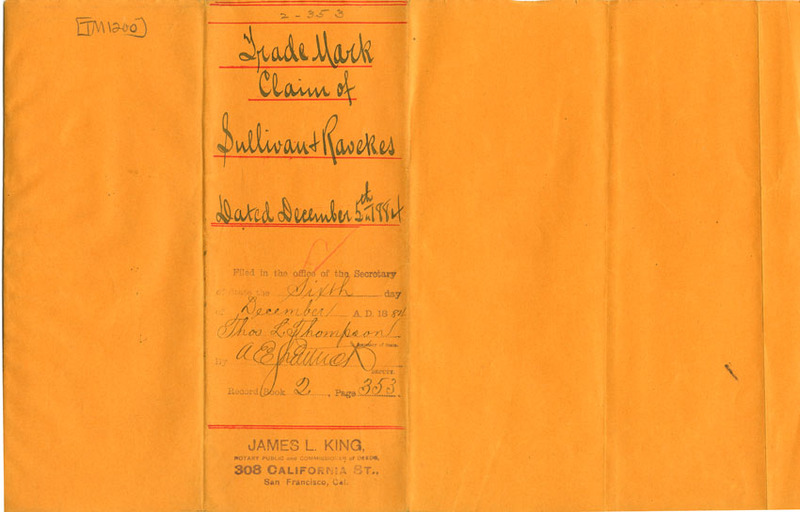 [TM1200]
2-353
Trade Mark
Claim of
Sullivan & Ravekes
Dated December 5th 1884
Filed in the office of the Secretary
of State the Sixth day
of December A.D. 1884
Thos L. Thompson
Secretary of State
By A E
DEPUTY.
Record Book 2, Page 353.
JAMES L. KING,
NOTARY PUBLIC and COMMISSIONER of DEEDS,
308 CALIFORNIA ST.,
San Francisco, Cal.